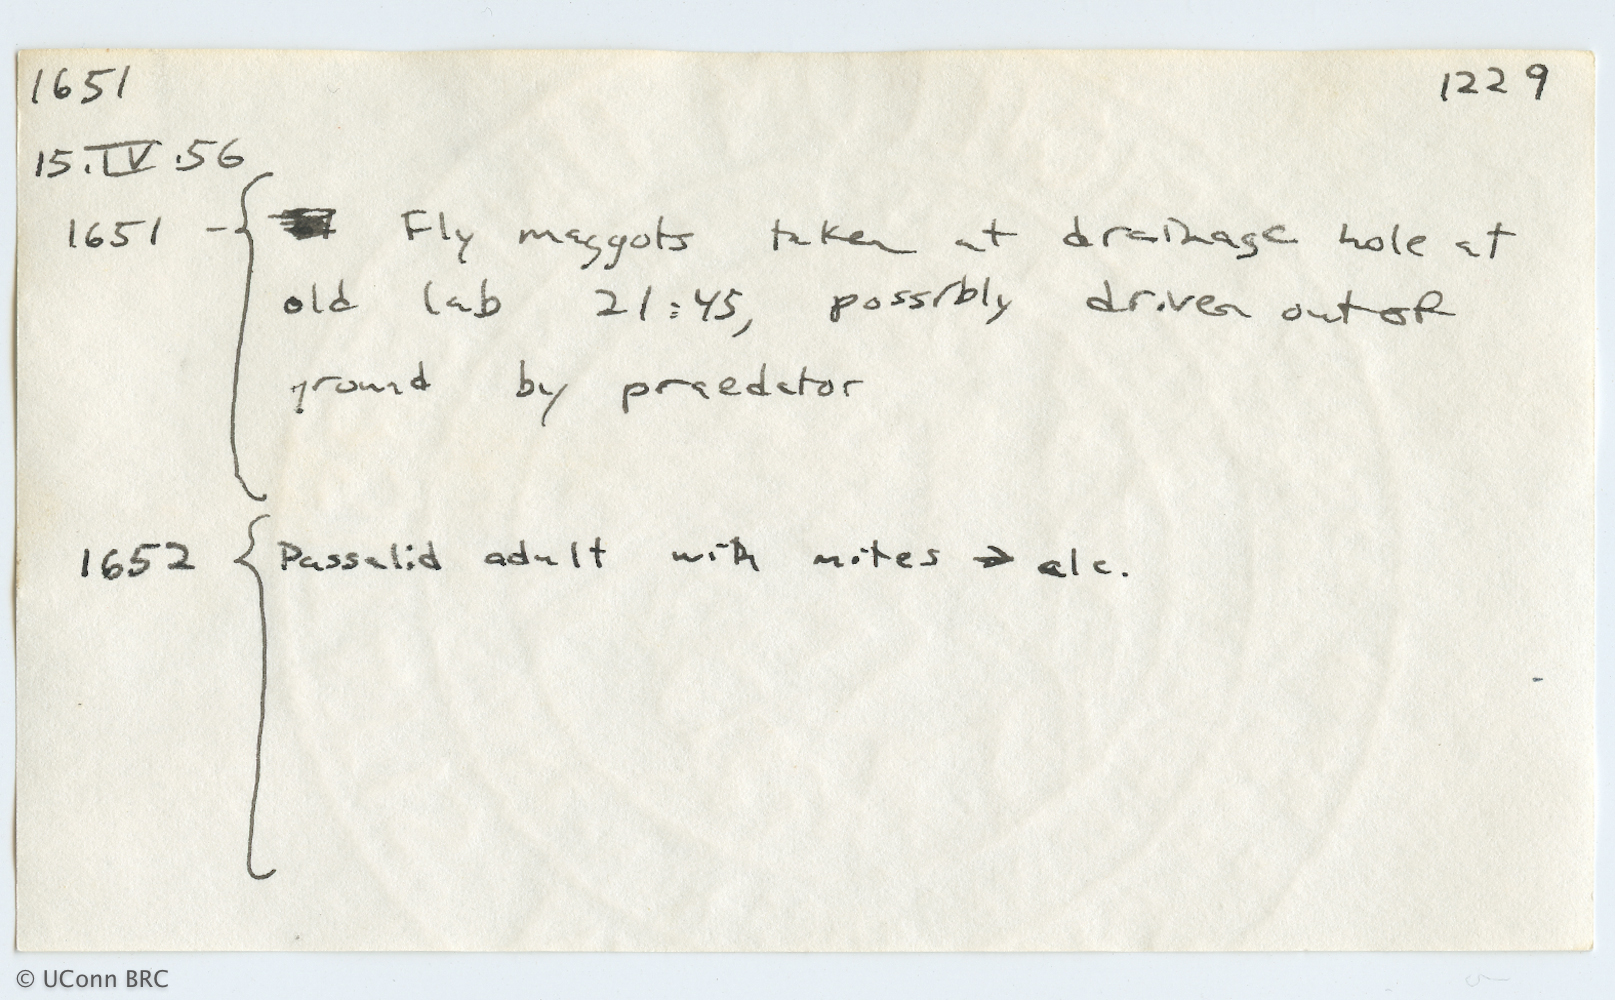 1651 1229
15.IV.56
1651 - Fly maggots taken at drainage hole at
old lab 21:45, possibly driven out of
ground by praedator
1652 Passalid adult with mites → alc.
© UConn BRC